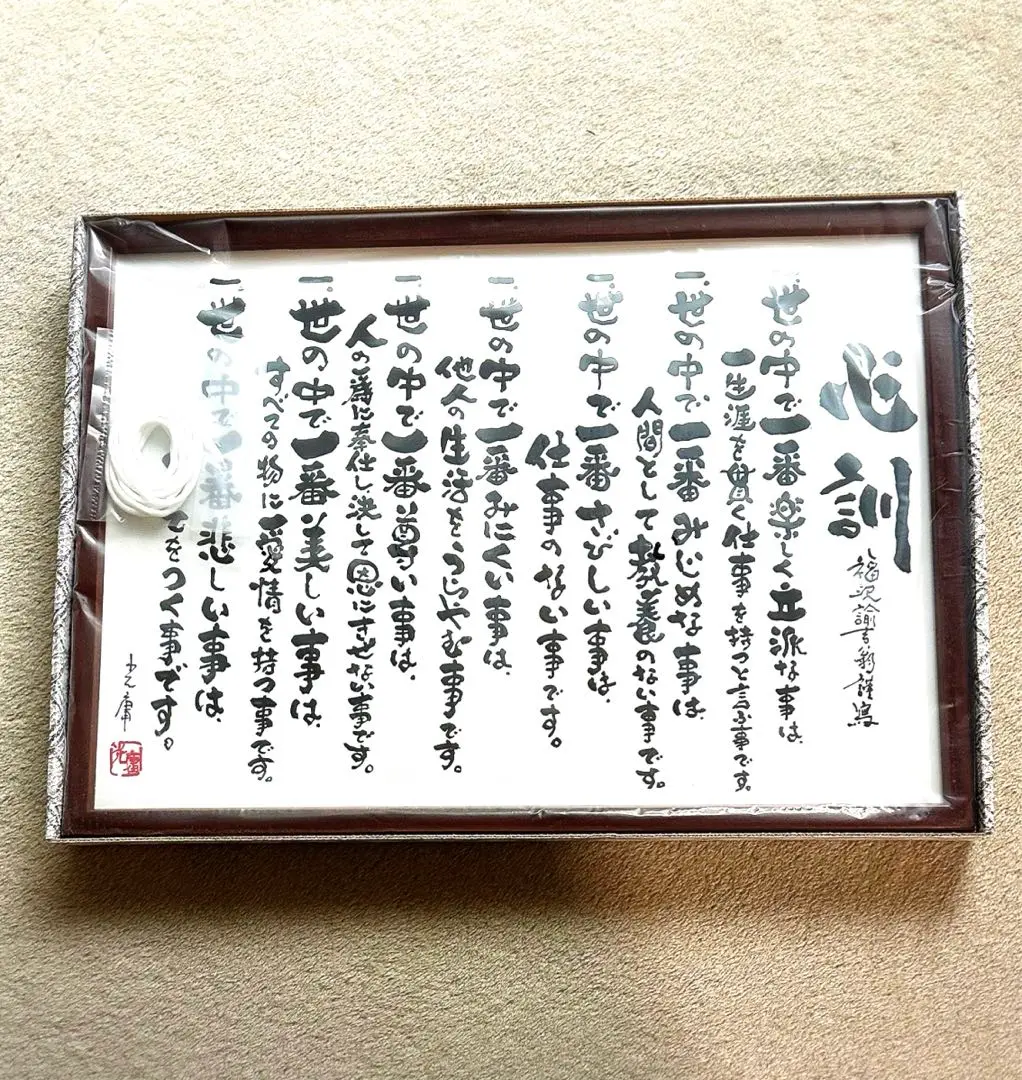 心訓
福沢諭吉翁謹写
一、世の中で一番楽しく立派な事は、
一生涯を貫く仕事を持つと言ふ事です。
一、世の中で一番みじめな事は、
人間として教養のない事です。
一、世の中で一番さびしい事は、
仕事のない事です。
一、世の中で一番みにくい事は、
他人の生活をうらやむ事です。
一、世の中で一番尊い事は、
人の為に奉仕し決して恩にきせない事です。
一、世の中で一番美しい事は、
すべての物に愛情を持つ事です。
一、世の中で一番悲しい事は、
をつく事です。